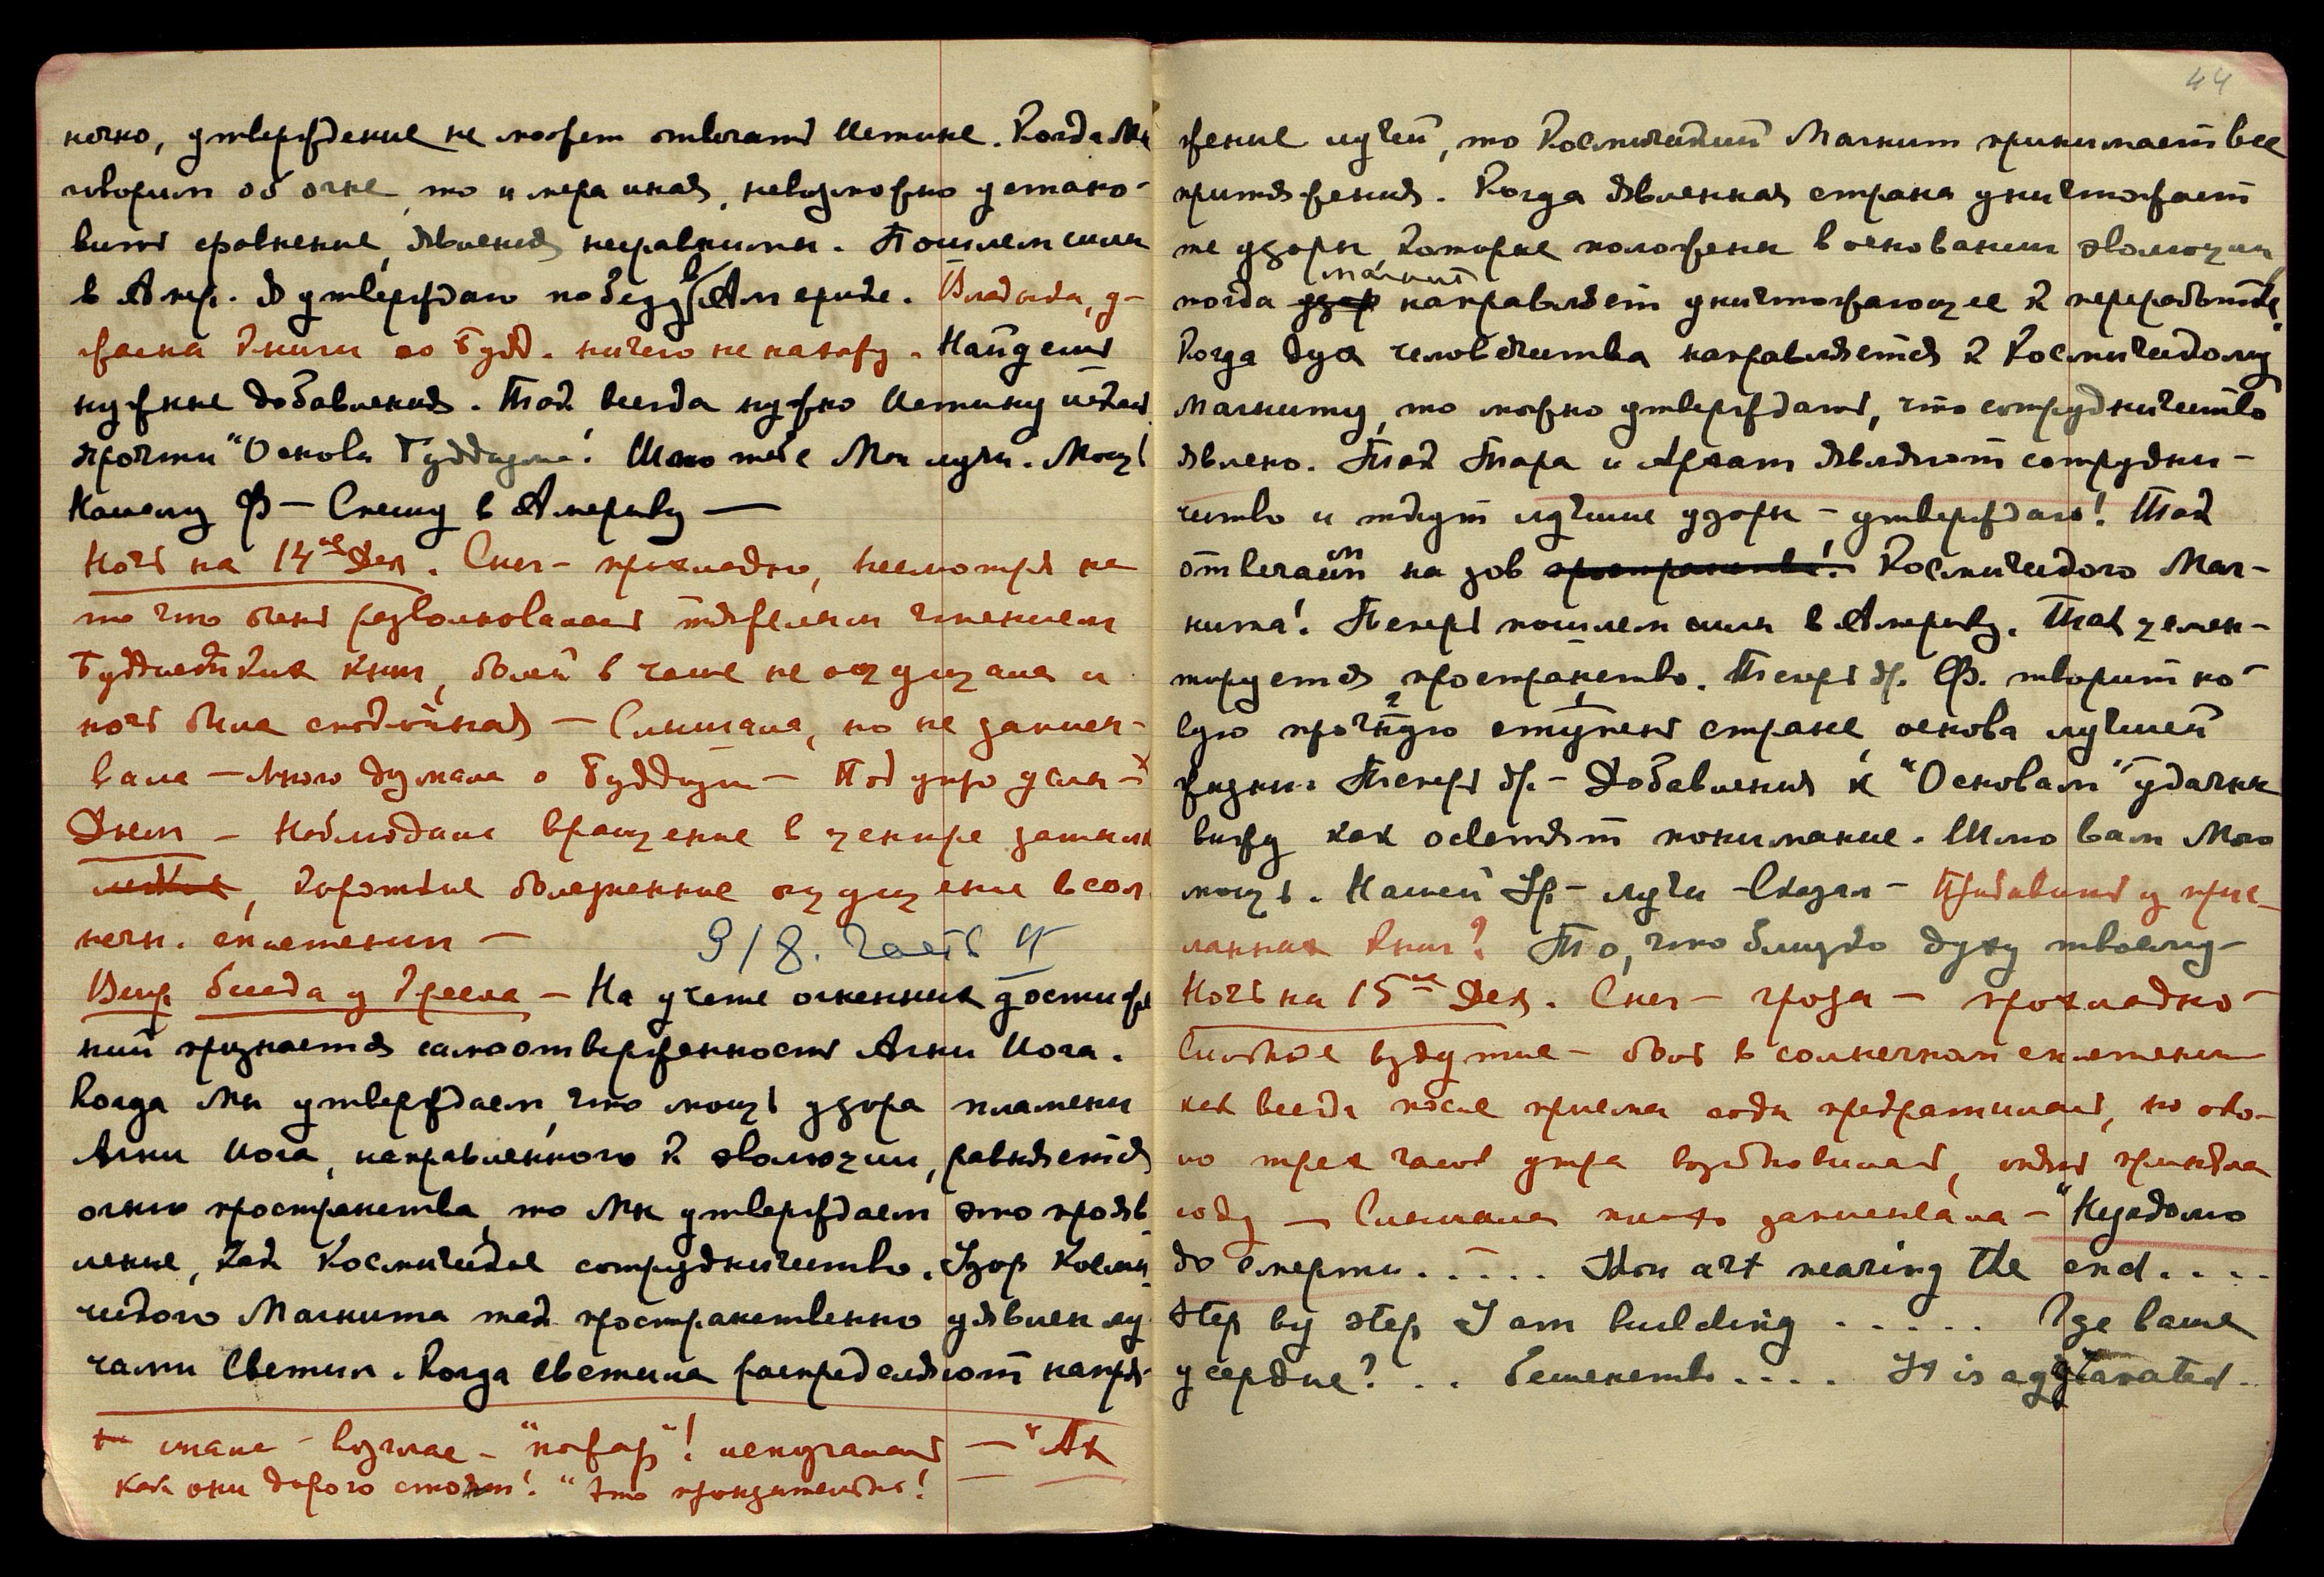 ночно, утверждение не может отвечать Истине. Когда Мы
говорим об огне, то и мера иная, невозможно устано-
вить сравнение, явления несравнимы. Пошлем силы
в Амер. Я утверждаю победу в Америке. Владыка, у-
жасна книги по Будд. ничего не нахожу. Найдешь
нужные добавления. Так всегда нужно Истину искать
прочти "Основы Буддизма"! Шлю тебе Мои лучи. Мощь
Нашему Ф — Спешу в Америку —
Ночь на 14ое Дек. Снег - прохладно, несмотря на
то что очень разволновалась тяжелым чтением
Буддистких книг, болей в чаше не ощущала и
ночь была спокойная — Слышала, но не записы-
вала — Много думала о Буддизме — Под утро
Днем — Наблюдала вращение в центре затыл
короткие болезненные ощущение в сол.
нечн. сплетении —
9/8. Часть
Веч. беседа у кресла — На учете огненных достиже
ний признается самоотверженность Агни Йога.
Когда Мы утверждаем, что мощь узора пламени
Агни Йога, направленного к эволюции, равняется
огню пространства, то Мы утверждаем это прояв
ление, как Космическое сотрудничество. Узор Косми
ческого Магнита так пространственно уявлен лу
чами Светил. Когда светила распределяют напря-
"пожар"! испугалась — "Ах
как они дорого стоят!" Это
44
жение лучей, то Космический Магнит принимает все
притяжения. Когда явленная страна уничтожает
те узоры, которые положены в основании эволюции,
магнит
тогда узор направляет уничтожающее к переработке.
Когда дух человечества направляется к Космическому
Магниту, то можно утверждать, что сотрудничество
явлено. Так Тара и Архат являют сотрудни-
чество и ткут лучшие узоры — утверждаю! Так
отвечаем на зов пространства! Космического Маг-
нита! Теперь пошлем силы в Америку. Так цемен-
тируется пространство. Теперь др. Ф. творит но-
вую прочную ступень стране, основа лучшей
жизни. Теперь др. — Добавления к "Основам" удачны
вижу как осветят понимание. Шлю вам Мою
мощь. Нашей Ур — лучи — Сказал — Прибавить из прис_
ланных книг? То, что близко духу твоему —
Ночь на 15ое Дек. Снег — гроза — прохладно —
Сильное вздутие — боль в солнечном сплетении
как всегда после приема соды прекратилась, но око-
ло трех часов утра возобновилась, опять приняла
соду — Слышала записала — "Незадолго
до смерти..... Thou art nearing the end....
Step by step I am building ..... Где ваше
усердие? .. Бешенство.... It is aggravated..